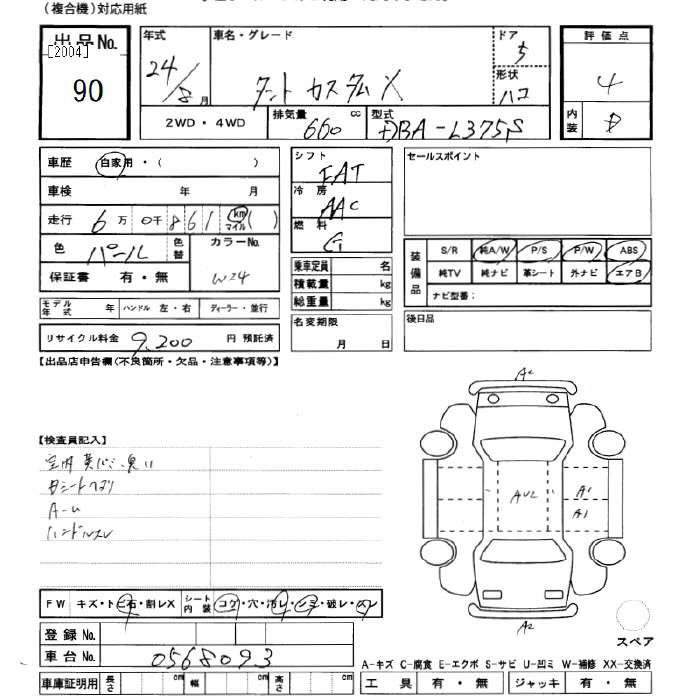 (複合機)対応用紙
出品No.
[2004]
90
年式 24/8月
車名・グレード タント カスタム X
ドア 5
形状 ハコ
評価点 4
内装
2WD・4WD
排気量 660 cc
型式 DBA-L375S
車歴 自家用・( )
車検 年 月
走行 6万 0千 861 km マイル ( )
色 パール 色替
カラーNo. W24
保証書 有・無
モデル年式 年 ハンドル 左・右 ディーラー・並行
リサイクル料金 9,200 円 預託済
シフト FAT
冷房 AAC
燃料 G
乗車定員 名
積載量 kg
総重量 kg
名変期限
月 日
セールスポイント
装備品
S/R 純A/W P/S P/W ABS
純TV 純ナビ 革シート 外ナビ エアB
ナビ型番:
後日品
【出品店申告欄(不良箇所・欠品・注意事項等)】
【検査員記入】
ハンドルスレ
FW キズ・トビ石・割レX シート内装 コゲ・穴・汚レ・シミ・破レ・スレ
登録No.
車台No. 0568093
車庫証明用 長さ cm 幅 cm 高さ cm
A2
AU2
A1
A1
A2
スペア
A-キズ C-腐食 E-エクボ S-サビ U-凹ミ W-補修 XX-交換済
工具 有・無 ジャッキ 有・無